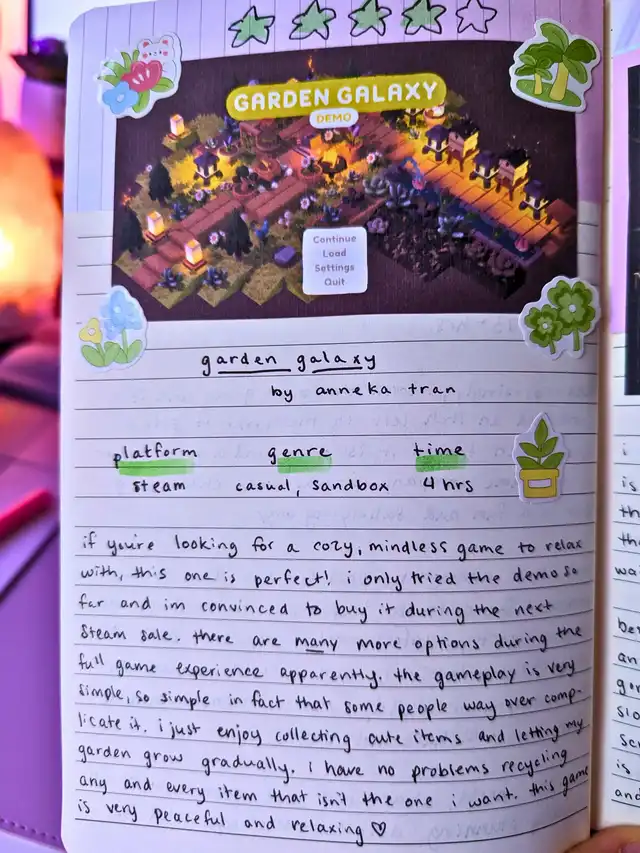 GARDEN GALAXY
DEMO
Continue
Load
Settings
Quit
garden galaxy
by anneka tran
platform genre time
steam casual, sandbox 4 hrs
if you're looking for a cozy, mindless game to relax
with, this one is perfect! i only tried the demo so
far and im convinced to buy it during the next
steam sale. there are many more options during the
full game experience apparently. the gameplay is very
simple, so simple in fact that some people way over comp-
licate it. i just enjoy collecting cute items and letting my
garden grow gradually. i have no problems recycling
any and every item that isn't the one i want. this game
is very peaceful and relaxing ♡
i
is
th
the
wai
be
an
gar
slo
scr
is
and